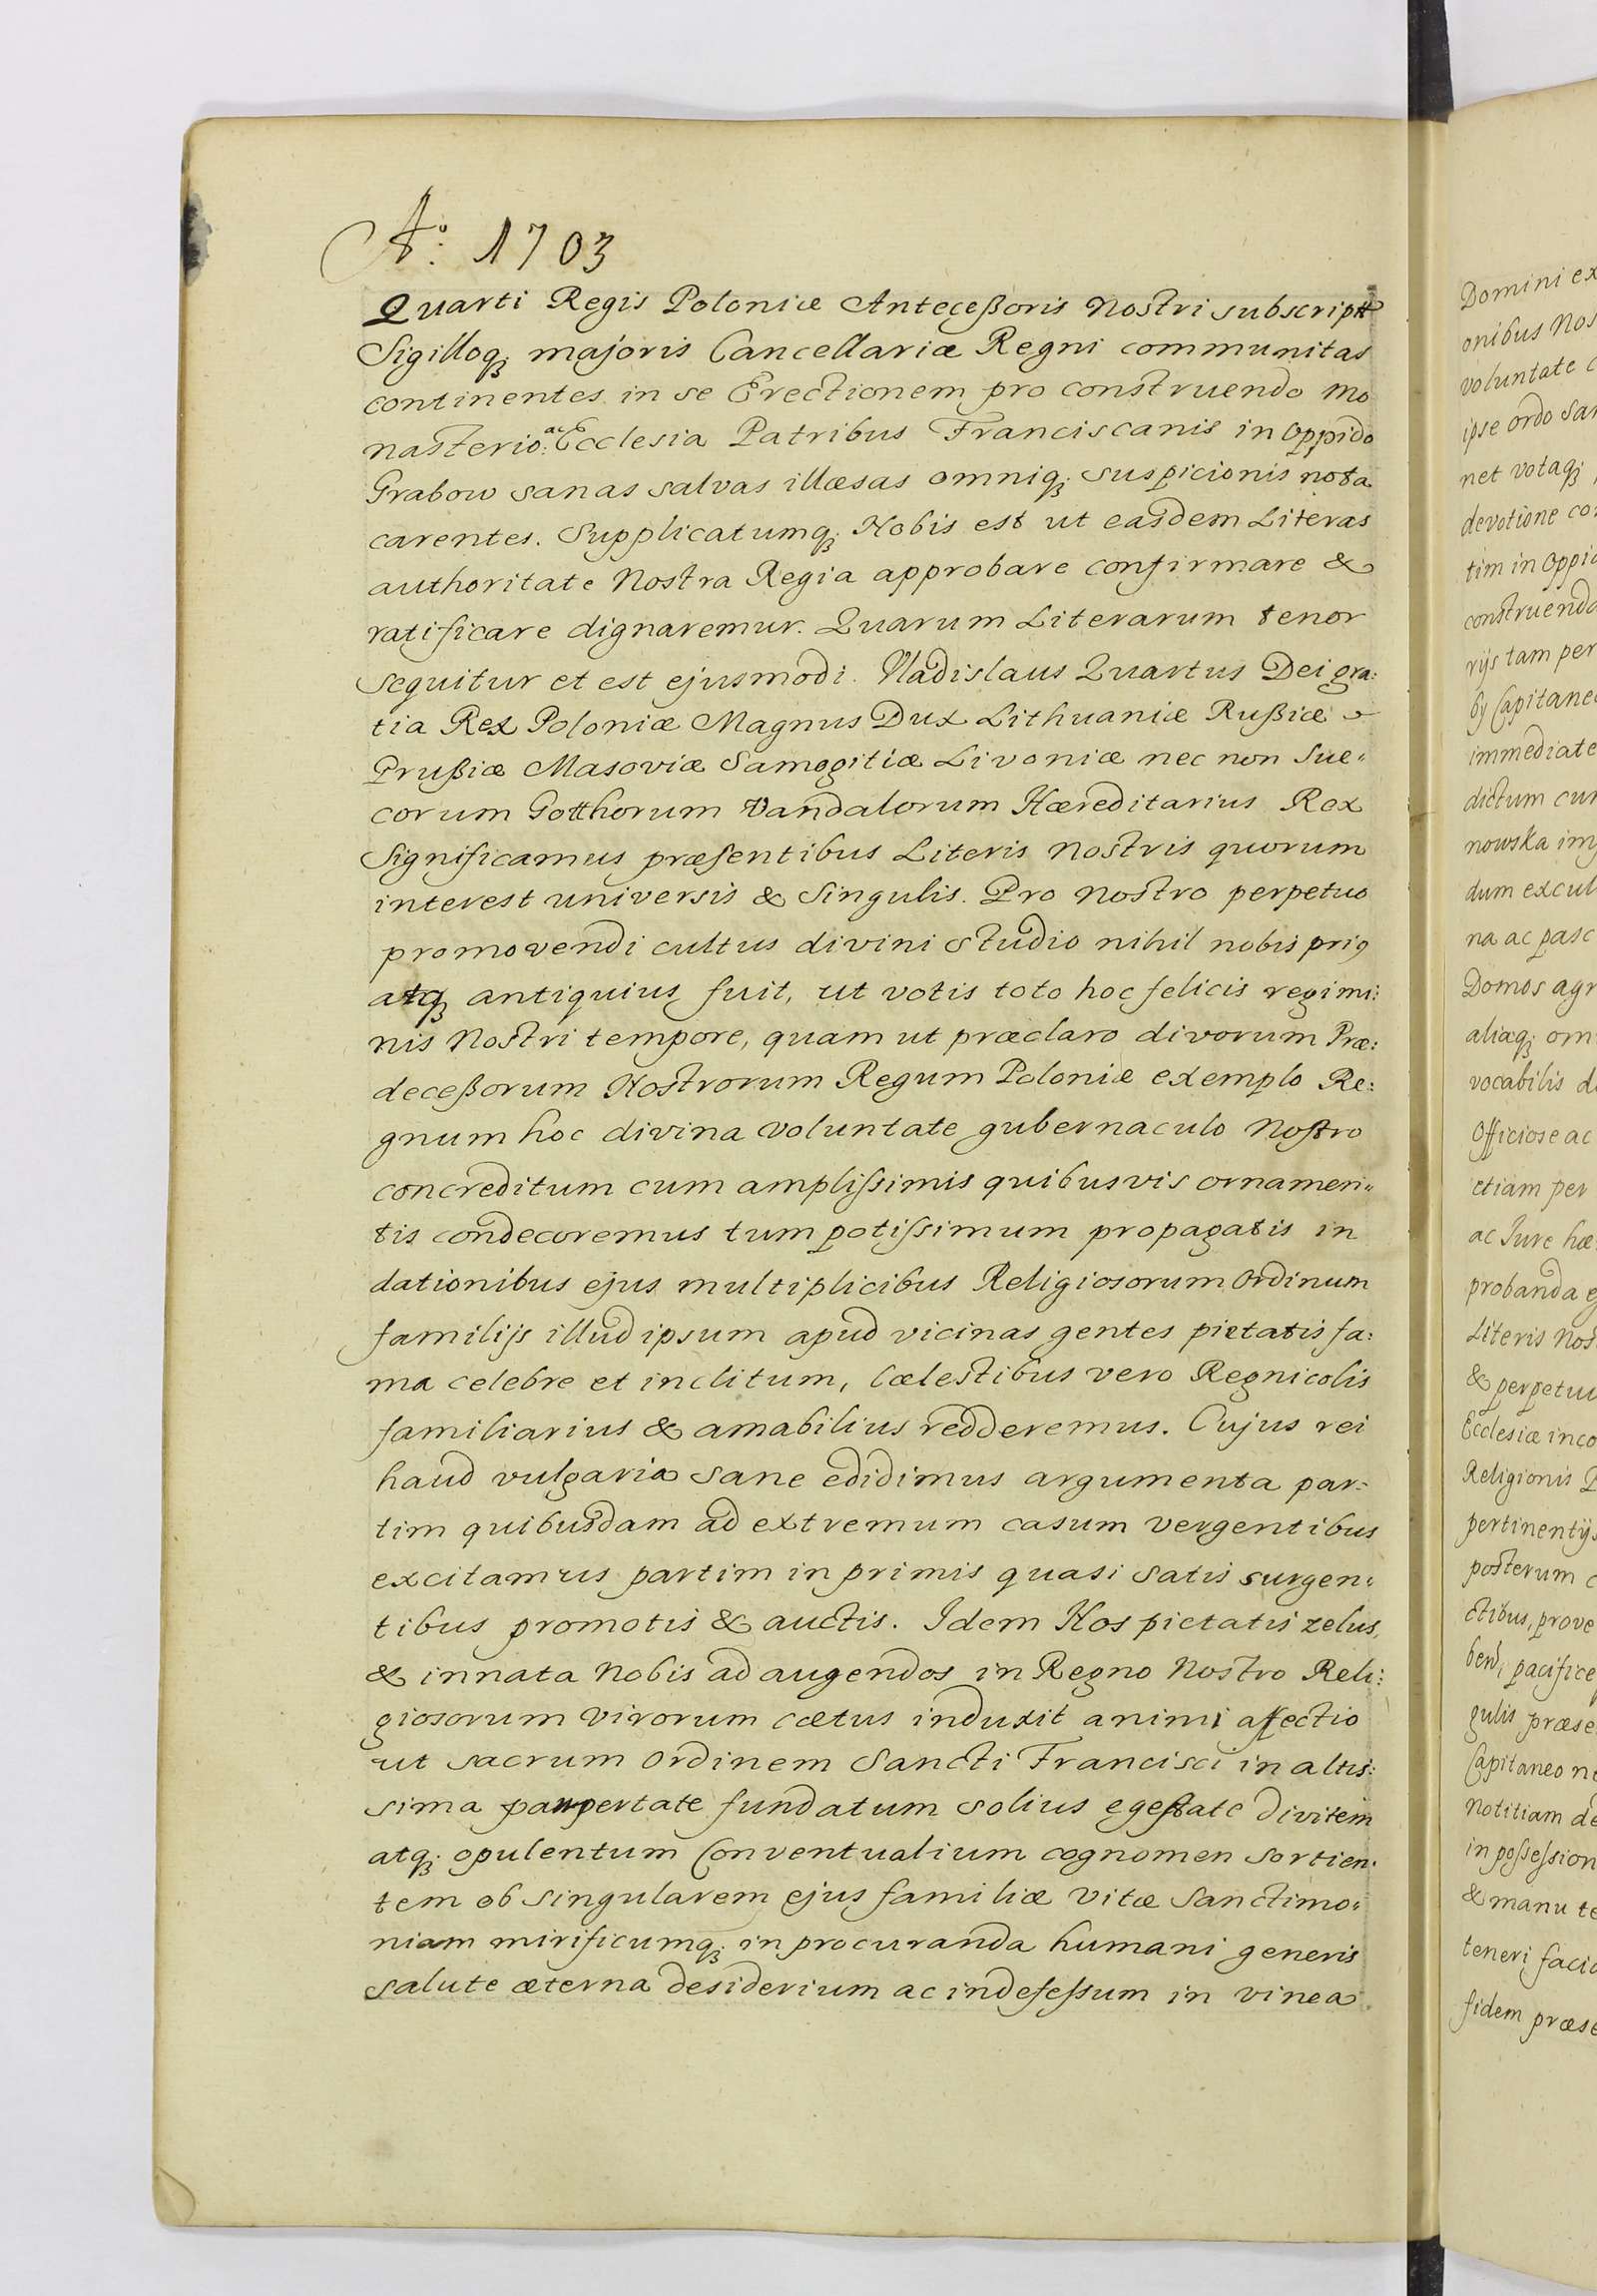 Aº: 1703
Quarti Regis Poloniæ Anteceßoris Nostri subscript
Sigilloq; majoris Cancellariæ Regni communitas
continentes in se Erectionem pro construendo mo
nasterio: ac Ecclesia Patribus Franciscanis in Oppido
Grabow sanas salvas illæsas omniq; suspicionis nota
carentes. Supplicatumq; Nobis est ut easdem Literas
authoritate Nostra Regia approbare confirmare &
ratificare dignaremur. Quarum Literarum tenor
sequitur et est ejusmodi. Vladislaus Quartus Dei gra:
tia Rex Poloniæ Magnus Dux Lithuaniæ Rußiæ
Prußiæ Masoviæ Samogitiæ Livoniæ nec non Sue„
corum Gotthorum Vandalorum Hæreditarius Rex
Significamus præsentibus Literis Nostris quorum
interest universis & Singulis. Pro Nostro perpetuo
promovendi cultus divini studio nihil nobis prius
atq; antiquius fuit, ut votis toto hoc felicis regimi:
nis Nostri tempore, quam ut præclaro divorum Præ:
deceßorum Nostrorum Regum Poloniæ exemplo Re:
gnum hoc divina voluntate gubernaculo Nostro
concreditum cum amplissimis quibusvis ornamen„
tis condecoremus tum potissimum propagatis in
dationibus ejus multiplicibus Religiosorum Ordinum
familijs illud ipsum apud vicinas gentes pietatis fa:
ma celebre et inclitum, Cælestibus vero Regnicolis
familiarius & amabilius redderemus. Cujus rei
haud vulgaria sane edidimus argumenta par:
tim quibusdam ad extremum casum vergentibus
excitamus partim in primis quasi satis surgen„
tibus promotis & auctis. Idem Nos pietatis zelus,
& innata Nobis ad augendos in Regno Nostro Reli:
giosorum Virorum cætus induxit animi affectio
ut sacrum Ordinem Sancti Francisci in altis:
sima paupertate fundatum solius egestate divitem
atq; opulentum Conventualium cognomen sortien„
tem ob singularem ejus familiæ vitæ Sanctimo„
niam mirificumq; in procuranda humani generis
salute æterna desiderium ac indefessum in vinea
Domini ex
onibus Nos
voluntate c
ipse ordo San
net votaq;
devotione co
tim in Oppid
construendo
rijs tam per
by Capitaneo
immediate
dictum cum
nowska im
dum excul
na ac pasc
Domos agr
aliaq; om
vocabilis d
Officiose ac
etiam per
ac Jure hæ
probanda e
Literis Nos
& perpetuu
Ecclesiæ inco
Religionis P
pertinentijs
posterum c
ctibus, prove
bend, pacifice
gulis præse
Capitaneo no
Notitiam de
in possession
& manu te
teneri facia
fidem præse